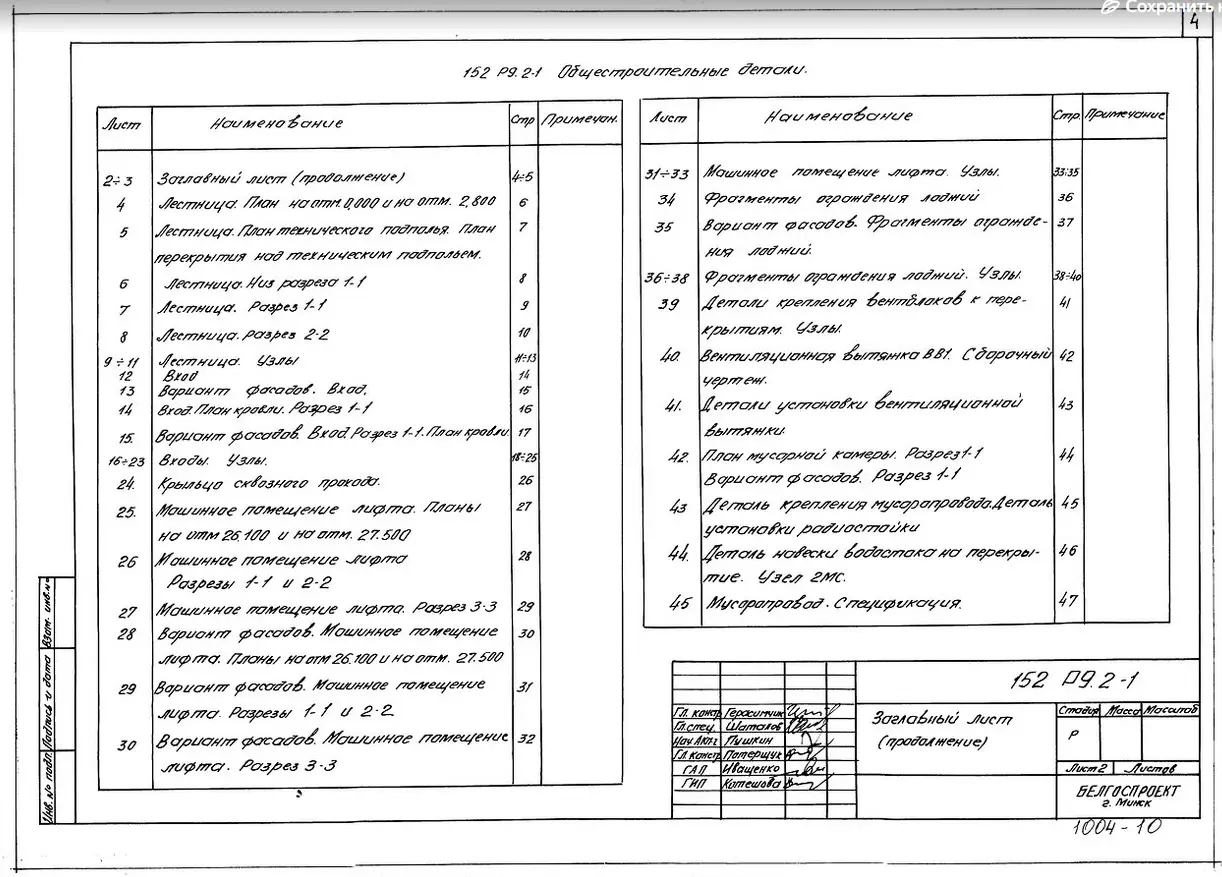 Сохранить
4
152 Р9.2-1 Общестроительные детали.
Лист Наименование Стр Примечан.
2÷3 Заглавный лист (продолжение) 4÷5
4 Лестница. План на отм. 0,000 и на отм. 2,800 6
5 Лестница. План технического подполья. План 7
перекрытия над техническим подпольем.
6 Лестница. Низ разреза 1-1 8
7 Лестница. Разрез 1-1 9
8 Лестница. разрез 2-2 10
9÷11 Лестница. Узлы 11÷13
12 Вход 14
13 Вариант фасадов. Вход. 15
14 Вход. План кровли. Разрез 1-1 16
15. Вариант фасадов. Вход. Разрез 1-1. План кровли. 17
16÷23 Входы. Узлы. 18÷25
24. Крыльцо сквозного прохода. 26
25. Машинное помещение лифта. Планы 27
на отм 26.100 и на отм. 27.500
26 Машинное помещение лифта 28
Разрезы 1-1 и 2-2
27 Машинное помещение лифта. Разрез 3-3 29
28 Вариант фасадов. Машинное помещение 30
лифта. Планы на отм 26.100 и на отм. 27.500
29 Вариант фасадов. Машинное помещение 31
лифта. Разрезы 1-1 и 2-2
30 Вариант фасадов. Машинное помещение 32
лифта. Разрез 3-3
Лист Наименование Стр. Примечание
31÷33 Машинное помещение лифта. Узлы. 33÷35
34 Фрагменты ограждения лоджий 36
35 Вариант фасадов. Фрагменты огражде- 37
ния лоджий.
36÷38 Фрагменты ограждения лоджий. Узлы. 38÷40
39 Детали крепления вентблоков к пере- 41
крытиям. Узлы.
40. Вентиляционная вытяжка ВВ1. Сборочный 42
чертеж.
41. Детали установки вентиляционной 43
вытяжки.
42. План мусорной камеры. Разрез 1-1 44
Вариант фасадов. Разрез 1-1
43 Деталь крепления мусоропровода. Деталь 45
установки радиостойки
44. Деталь навески водостока на перекры- 46
тие. Узел 2МС.
45 Мусоропровод. Спецификация. 47
Инв. № подл. Подпись и дата Взам. инв. №
Гл. констр Герасимчик
Гл. спец. Шаталов
Нач АКМ-2 Пушкин
Гл. констр Потерщук
ГАП Иващенко
ГИП Китешова
152 Р9.2-1
Заглавный лист
(продолжение)
Стадия Масса Масштаб
Р
Лист 2 Листов
БЕЛГОСПРОЕКТ
г. Минск
1004-10